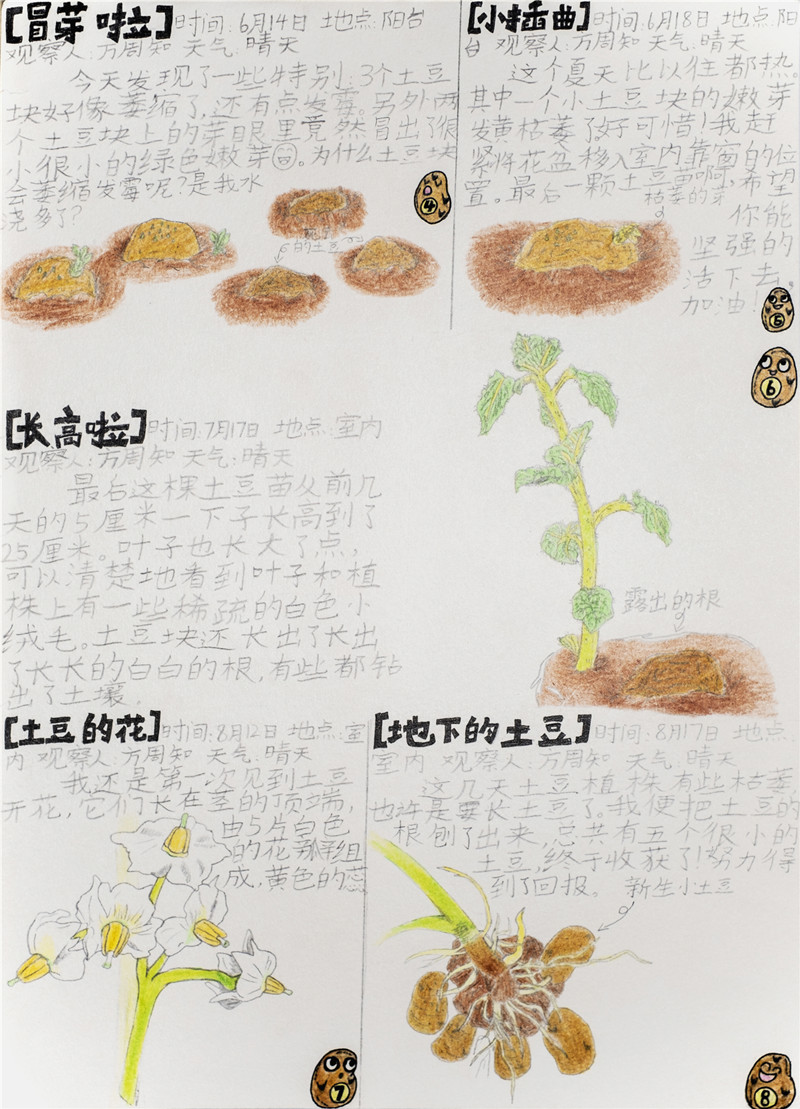 [冒芽啦]时间:6月14日 地点:阳台
观察人:方周知 天气:晴天
今天发现了一些特别:3个土豆
块好像萎缩了,还有点发霉。另外两
个土豆块上的芽眼里竟然冒出了很
小很小的绿色嫩芽。为什么土豆块
会萎缩发霉呢?是我水
浇多了?
的土豆
4
[小插曲]时间:6月18日 地点:阳
台 观察人:方周知 天气:晴天
这个夏天比以往都热。
其中一个小土豆块的嫩芽
发黄枯萎了好可惜!我赶
紧将花盆移入室内靠窗的位
置。最后一颗土豆苗啊,希望
你能
坚强的
活下去。
加油!
枯萎的芽
5
6
[长高啦]时间:7月17日 地点:室内
观察人:方周知 天气:晴天
最后这棵土豆苗从前几
天的5厘米一下子长高到了
25厘米。叶子也长大了点,
可以清楚地看到叶子和植
株上有一些稀疏的白色小
绒毛。土豆块还长出了长出
了长长的白白的根,有些都钻
出了土壤。
露出的根
[土豆的花]时间:8月12日 地点:室
内 观察人:方周知 天气:晴天
我还是第一次见到土豆
开花,它们长在茎的顶端,
由5片白色
的花瓣组
成,黄色的蕊
7
[地下的土豆]时间:8月17日 地点:
室内 观察人:方周知 天气:晴天
这几天土豆植株有些枯萎,
也许是要长土豆了。我便把土豆的
根刨了出来,总共有五个很小的
土豆,终于收获了!努力得
到了回报。
新生小土豆
8